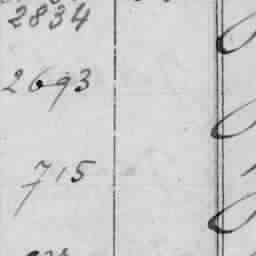 2834
2693
715